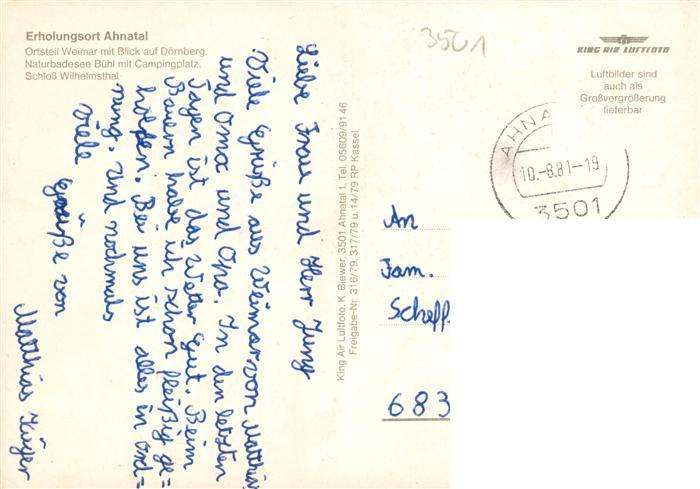 Erholungsort Ahnatal
Ortsteil Weimar mit Blick auf Dörnberg,
Naturbadesee Bühl mit Campingplatz.
Schloß Wilhelmsthal
Liebe Frau und Herr Jung
Viele Grüße aus Weimar von Matthias
und Oma und Opa. In den letzten
Tagen ist das Wetter gut. Beim
Bauern habe ich schon fleißig ge=
holfen. Bei uns ist alles in Ord=
nung. Und nochmals
Viele
Grüße von
Matthias
King Air Luftfoto, K. Biewer, 3501 Ahnatal 1, Tel. 05609/91 46
Freigabe-Nr. 316/79, 317/79 u. 14/79 RP Kassel
3501
KING AIR LUFTFOTO
Luftbilder sind
auch als
Großvergrößerung
lieferbar
AHNA
10.-8.81-19
3501
An
Fam.
Scheff
683